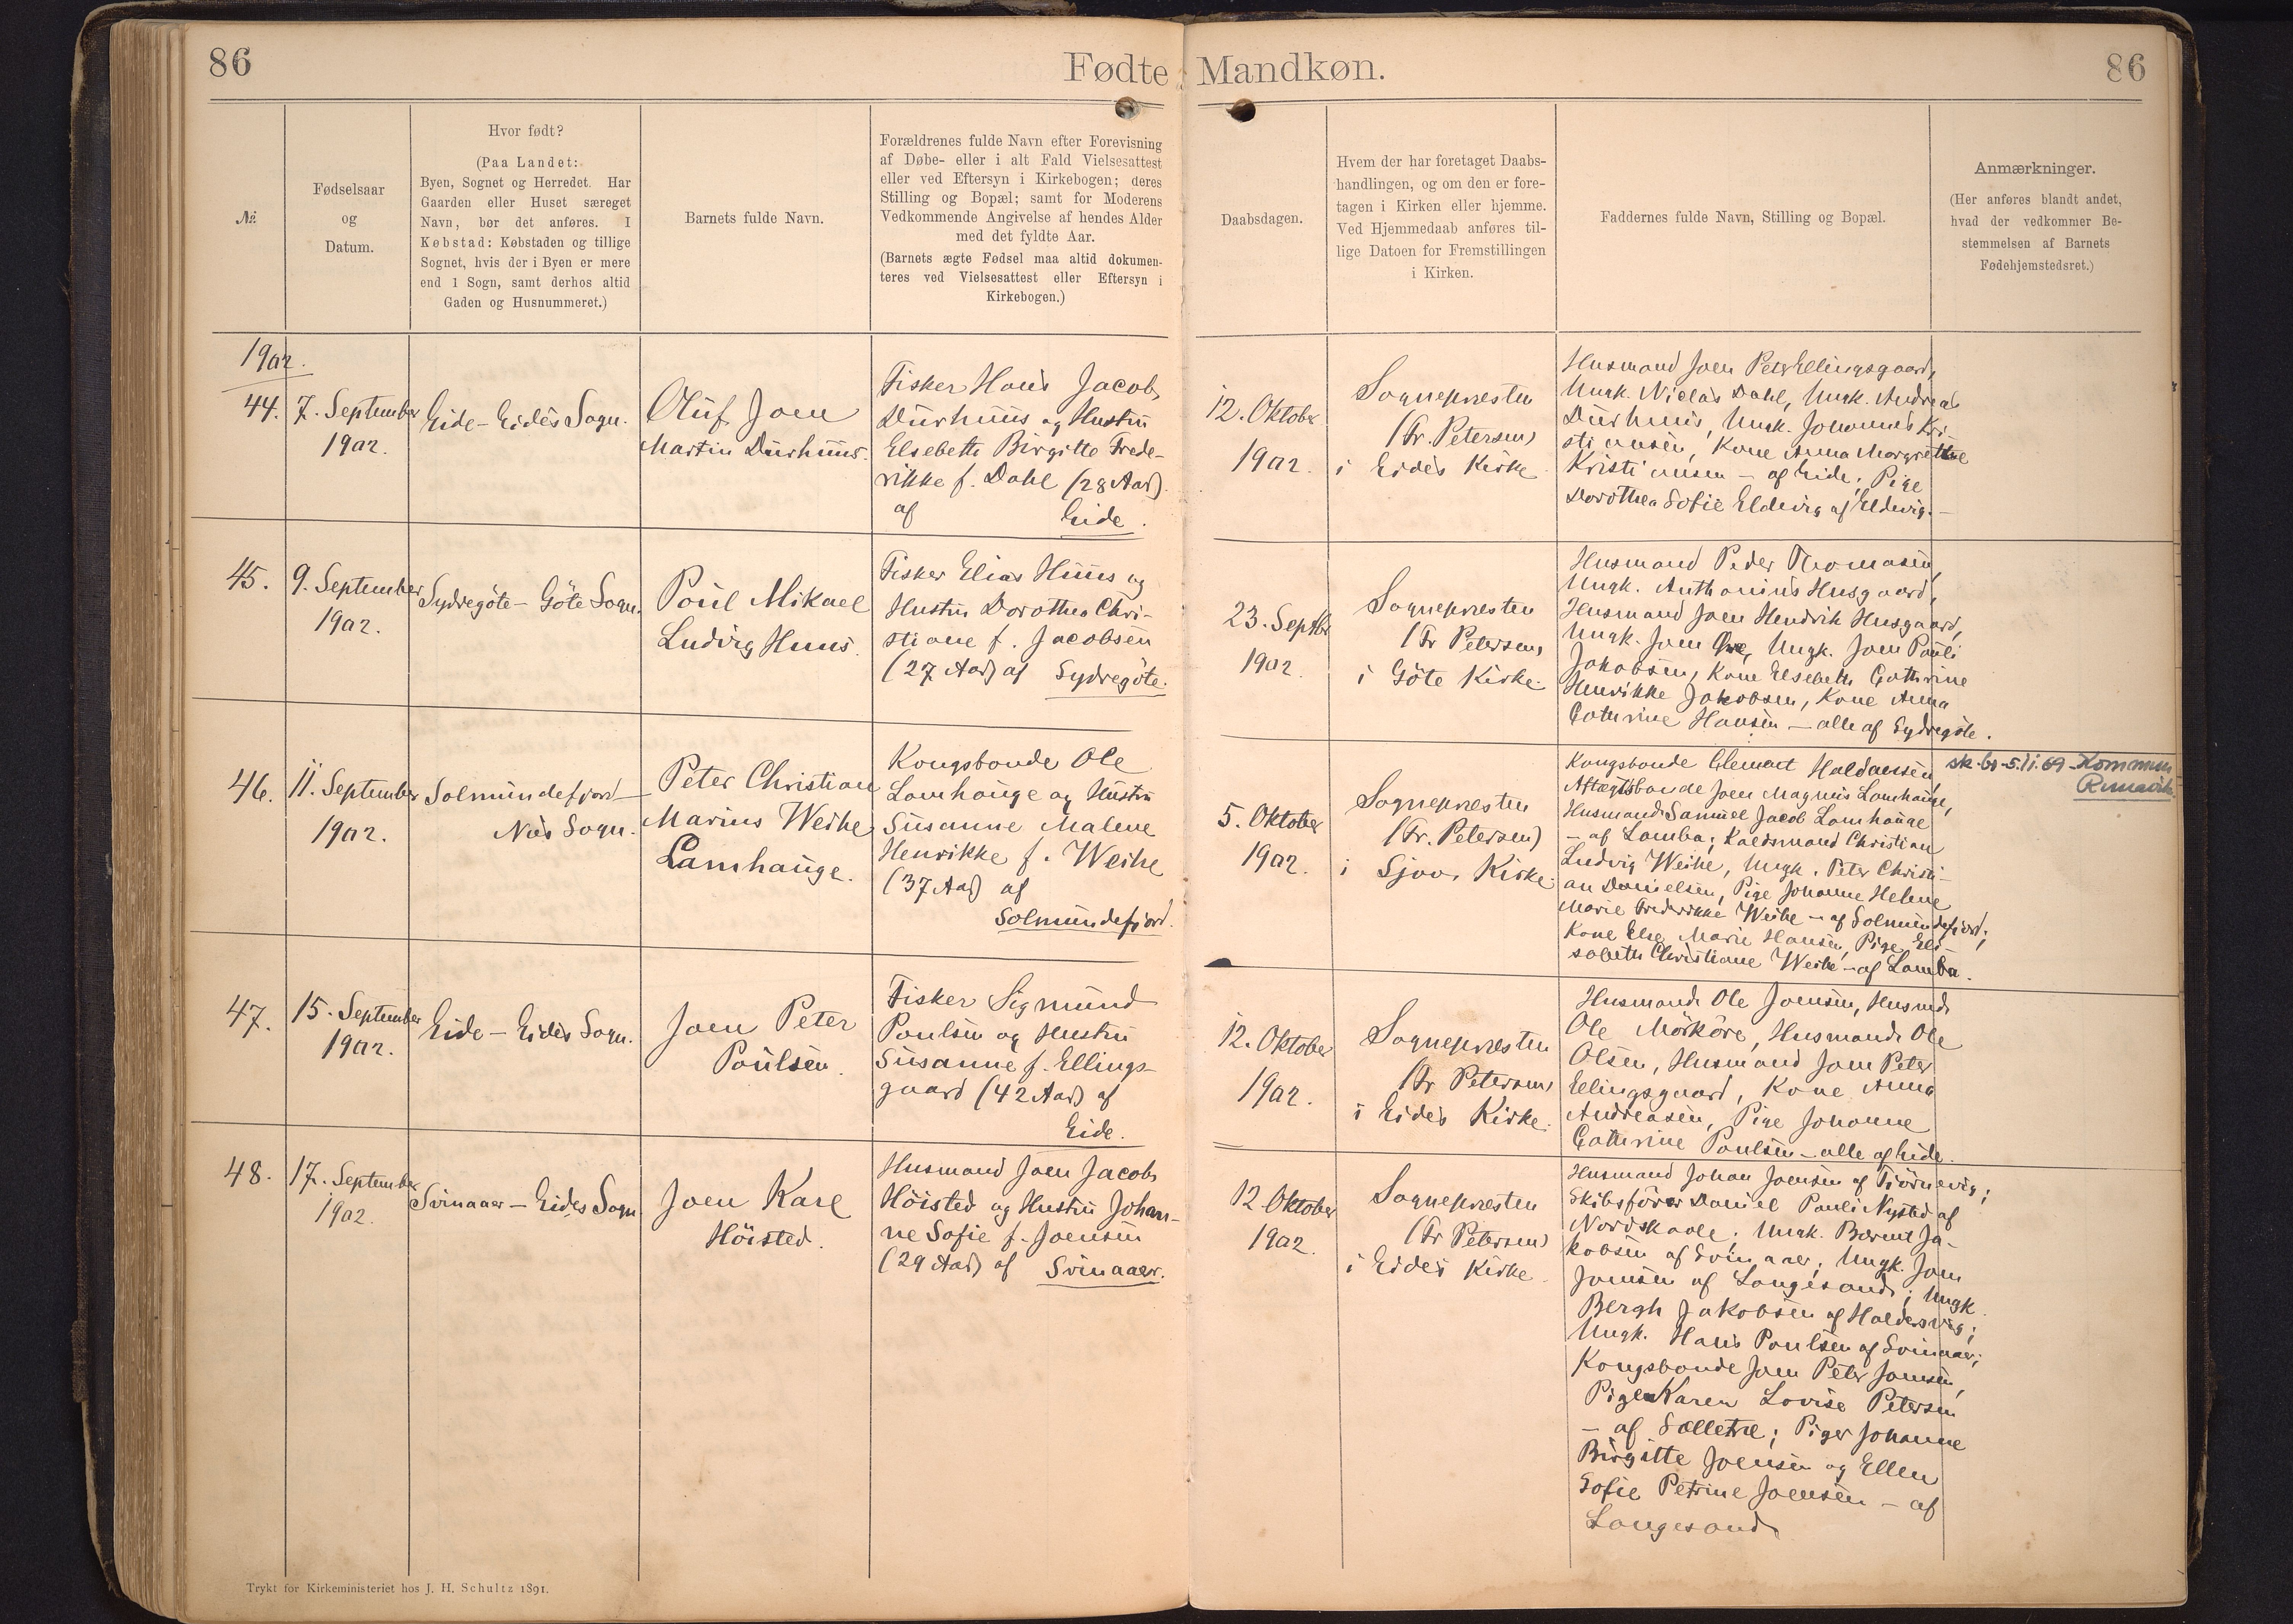 86
Fødte Mandkøn.
86
№
Fødselsaar
og
Datum.
Hvor født?
(Paa Landet:
Byen, Sognet og Herredet. Har
Gaarden eller Huset særeget
Navn, bør det anføres. I
Købstad: Købstaden og tillige
Sognet, hvis der i Byen er mere
end 1 Sogn, samt derhos altid
Gaden og Husnummeret.)
Barnets fulde Navn.
Forældrenes fulde Navn efter Forevisning
af Døbe- eller i alt Fald Vielsesattest
eller ved Eftersyn i Kirkebogen; deres
Stilling og Bopæl; samt for Moderens
Vedkommende Angivelse af hendes Alder
med det fyldte Aar.
(Barnets ægte Fødsel maa altid dokumen-
teres ved Vielsesattest eller Eftersyn i
Kirkebogen.)
Daabsdagen.
Hvem der har foretaget Daabs-
handlingen, og om den er fore-
tagen i Kirken eller hjemme.
Ved Hjemmedaab anføres til-
lige Datoen for Fremstillingen
i Kirken.
Faddernes fulde Navn, Stilling og Bopæl.
Anmærkninger.
(Her anføres blandt andet,
hvad der vedkommer Be-
stemmelsen af Barnets
Fødehjemstedsret.)
1902.
44.
7. September
1902.
Eide - Eides Sogn.
Oluf Joen
Martin Durhuus.
Fisker Hans Jacob
Durhuus og Hustru
Elsebeth Birgitte Frede-
rikke f. Dahl (28 Aar)
af Eide.
12. Oktober
1902.
Sognepræsten
(Fr. Petersen)
i Eides Kirke
Husmand Joen Peter Ellingsgaard,
Ungk. Niclas Dahl, Ungk. Andreas
Durhuus, Ungk. Johannes Kri-
stiansen, Kone Anna Margrethe
Kristiansen - af Eide; Pige
Dorothea Sofie Eldevig af Eldevig. -
45.
9. September
1902.
Sydregöte - Göte Sogn.
Poul Mikael
Ludvig Huus.
Fisker Elias Huus og
Hustru Dorothea Chri-
stiane f. Jacobsen
(27 Aar) af Sydregöte.
23. Septbr
1902.
Sognepræsten
(Fr Petersen)
i Göte Kirke.
Husmand Peder Thomasen,
Ungk. Anthonius Husgaard,
Husmand Joen Hendrik Husgaard,
Ungk. Joen Ungk. Joen Pauli
Jakobsen, Kone Elsebeth Cathrine
Henrikke Jakobsen, Kone Anna
Cathrine Hansen - alle af Sydregöte.
46.
11. September
1902.
Solmundefjord -
Næs Sogn.
Peter Christian
Marius Weihe
Lamhauge.
Kongsbonde Ole
Lamhauge og Hustru
Susanne Malene
Henrikke f. Weihe
(37 Aar) af
Solmundefjord.
5. Oktober
1902.
Sognepræsten
(Fr. Petersen)
i Sjov. Kirke.
Kongsbonde Clemart Haldansen,
Aftægtsbonde Joen Magnus Lamhauge,
Husmand Samuel Jacob Lamhauge
- af Lamba; Kaldsmand Christian
Ludvig Weihe, Ungk. Peter Christi-
an Danielsen, Pige Johanne Helene
Marie Frederikke Weihe - af Solmundefjord;
Kone Else Marie Hansen, Pige Eli-
sabeth Christiane Weihe - af Lamba.
5.11.69 Kommun
47.
15. September
1902.
Eide - Eides Sogn.
Joen Peter
Poulsen.
Fisker Sigmund
Poulsen og Hustru
Susanne f. Ellings-
gaard (42 Aar) af
Eide.
12. Oktober
1902.
Sognepræsten
(Fr Petersen)
i Eides Kirke.
Husmand Ole Joensen, Husmd
Ole Mörköre, Husmand Ole
Olsen, Husmand Joen Peter
Ellingsgaard, Kone Anna
Andreasen, Pige Johanne
Cathrine Poulsen - alle af Eide.
48.
17. September
1902.
Svinaaer - Eides Sogn
Joen Karl
Höisted.
Husmand Joen Jacob
Höisted og Hustru Johan-
ne Sofie f. Joensen
(29 Aar) af Svinaaer.
12. Oktober
1902.
Sognepræsten
(Fr Petersen)
i Eides Kirke
Husmand Johan Joensen af Tjörnevig;
Skibsförer Daniel Pauli Nysted af
Nordskaale; Ungk. Berent Ja-
kobsen af Svinaaer; Ungk. Joen
Joensen af Langesand; Ungk.
Bergh Jakobsen af Haldersvig;
Ungk. Hans Poulsen af Svinaaer;
Kongsbonde Joen Peter Joensen,
Pige Karen Lovise Petersen
- af Selletræ; Piger Johanne
Birgitte Joensen og Ellen
Sofie Petrine Joensen - af
Langesand
Trykt for Kirkeministeriet hos J. H. Schultz 1891.